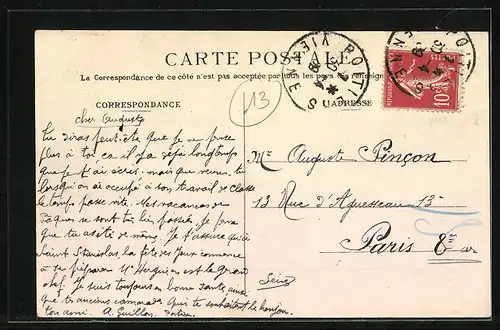 CARTE POSTALE
La Correspondance de ce côté n'est pas acceptée par tous les pays
CORRESPONDANCE
ADRESSE
113
POITIERS
VIENNE
10
cher Auguste
Tu diras peut-être que je ne pense
plus à toi car il y a déjà longtemps
que je t'ai écris, mais que veux-tu
lorsqu'on est occupé à son travail de classe
le temps passe vite. Mes vacances de
Pâques se sont très bien passées. Je pense
que tu as été de même. Je t'assure qu'à
Saint Stanislas, la fête des Jeux commence
à se préparer. Mr est le grand
chef. Je suis toujours en bonne santé, ainsi
que tes anciens camarades qui te souhaitent le bonjour.
ton ami. A. Guillon.
Mr Auguste Pinçon
13 Rue d'Aguesseau 13
Paris 8e ar
Seine